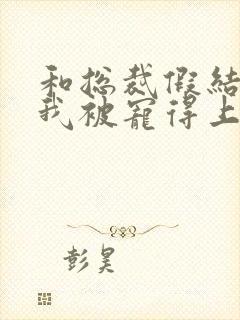 和总裁假结
我被宠得上
彭昊